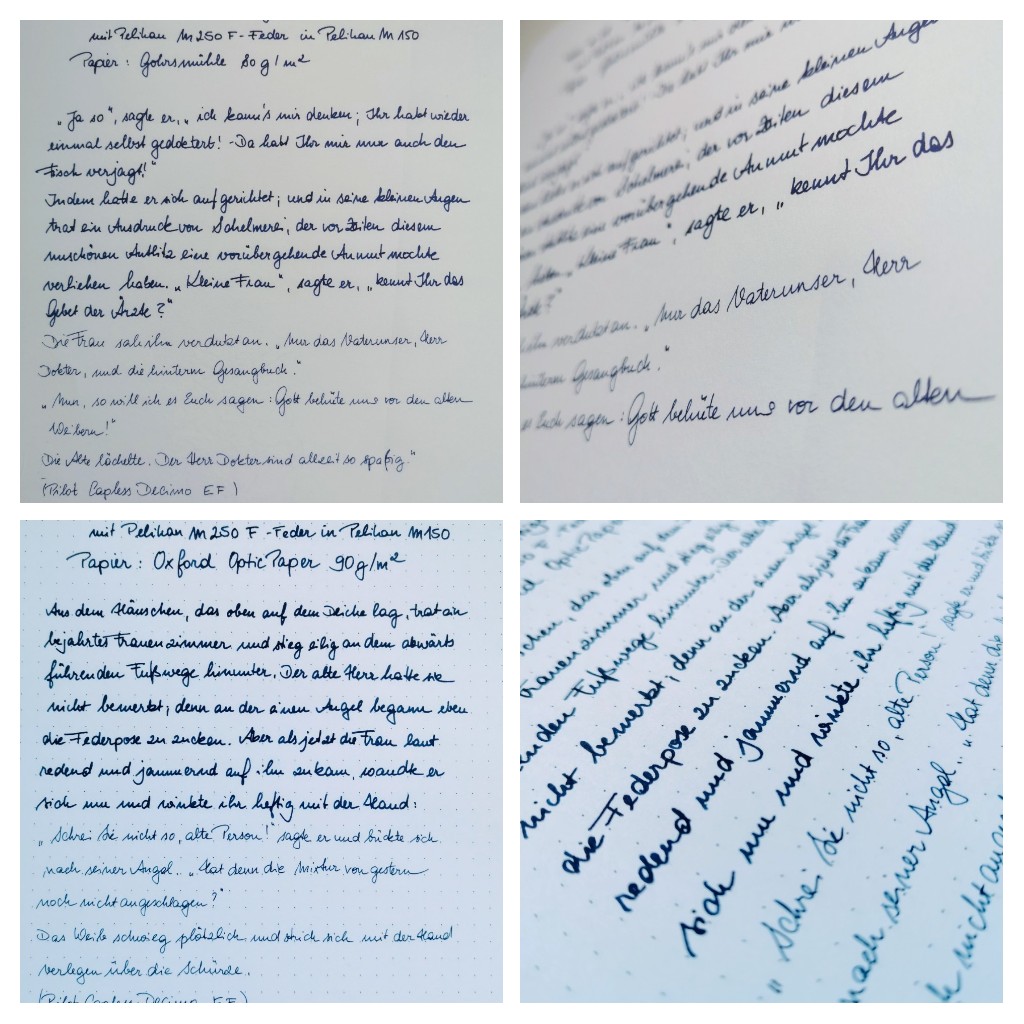 mit Pelikan M250 F-Feder in Pelikan M150
Papier: Gohrsmühle 80 g/m²
„Ja so", sagte er, „ich kann's mir denken; Ihr habt wieder
einmal selbst gedoktert! - Da habt Ihr mir nun auch den
Fisch verjagt!"
Indem hatte er sich aufgerichtet; und in seine kleinen Augen
trat ein Ausdruck von Schelmerei, der vor Zeiten diesem
unschönen Antlitz eine vorübergehende Anmut mochte
verliehen haben. „Kleine Frau", sagte er, „kennt Ihr das
Gebet der Ärzte?"
Die Frau sah ihn verdutzt an. „Nur das Vaterunser, Herr
Dokter, und die hinterm Gesangbuch."
„Nun, so will ich es Euch sagen: Gott behüte uns vor den alten
Weibern!"
Die Alte lächelte. Der Herr Dokter sind allezeit so spaßig."
(Pilot Capless Decimo EF)
kleinen Augen
der vor Zeiten diesem
eine vorübergehende Anmut mochte
„Kleine Frau", sagte er, „kennt Ihr das
verdutzt an. „Nur das Vaterunser, Herr
hinterm Gesangbuch."
es Euch sagen: Gott behüte uns vor den alten
mit Pelikan M250 F-Feder in Pelikan M150
Papier: Oxford Optic Paper 90g/m²
Aus dem Häuschen, das oben auf dem Deiche lag, trat ein
bejahrtes Frauenzimmer und stieg eilig an dem abwärts
führenden Fußwege hinunter. Der alte Herr hatte sie
nicht bemerkt; denn an der einen Angel begann eben
die Federpose zu zucken. Aber als jetzt die Frau laut
redend und jammernd auf ihn zukam, wandte er
sich um und winkte ihr heftig mit der Hand:
„Schrei Sie nicht so, alte Person!" sagte er und bückte sich
nach seiner Angel. „Hat denn die Mixtur von gestern
noch nicht angeschlagen?"
Das Weib schwieg plötzlich und strich sich mit der Hand
verlegen über die Schürze.
(Pilot Capless Decimo EF)
Frauenzimmer und stieg
Fußwege hinunter. Der alte
nicht bemerkt; denn an der einen Angel
die Federpose zu zucken. Aber als jetzt die Frau
redend und jammernd auf ihn zukam, wandte
sich um und winkte ihr heftig mit der Hand
„Schrei Sie nicht so, alte Person!" sagte er und bückte
nach seiner Angel. „Hat denn die
nicht ang